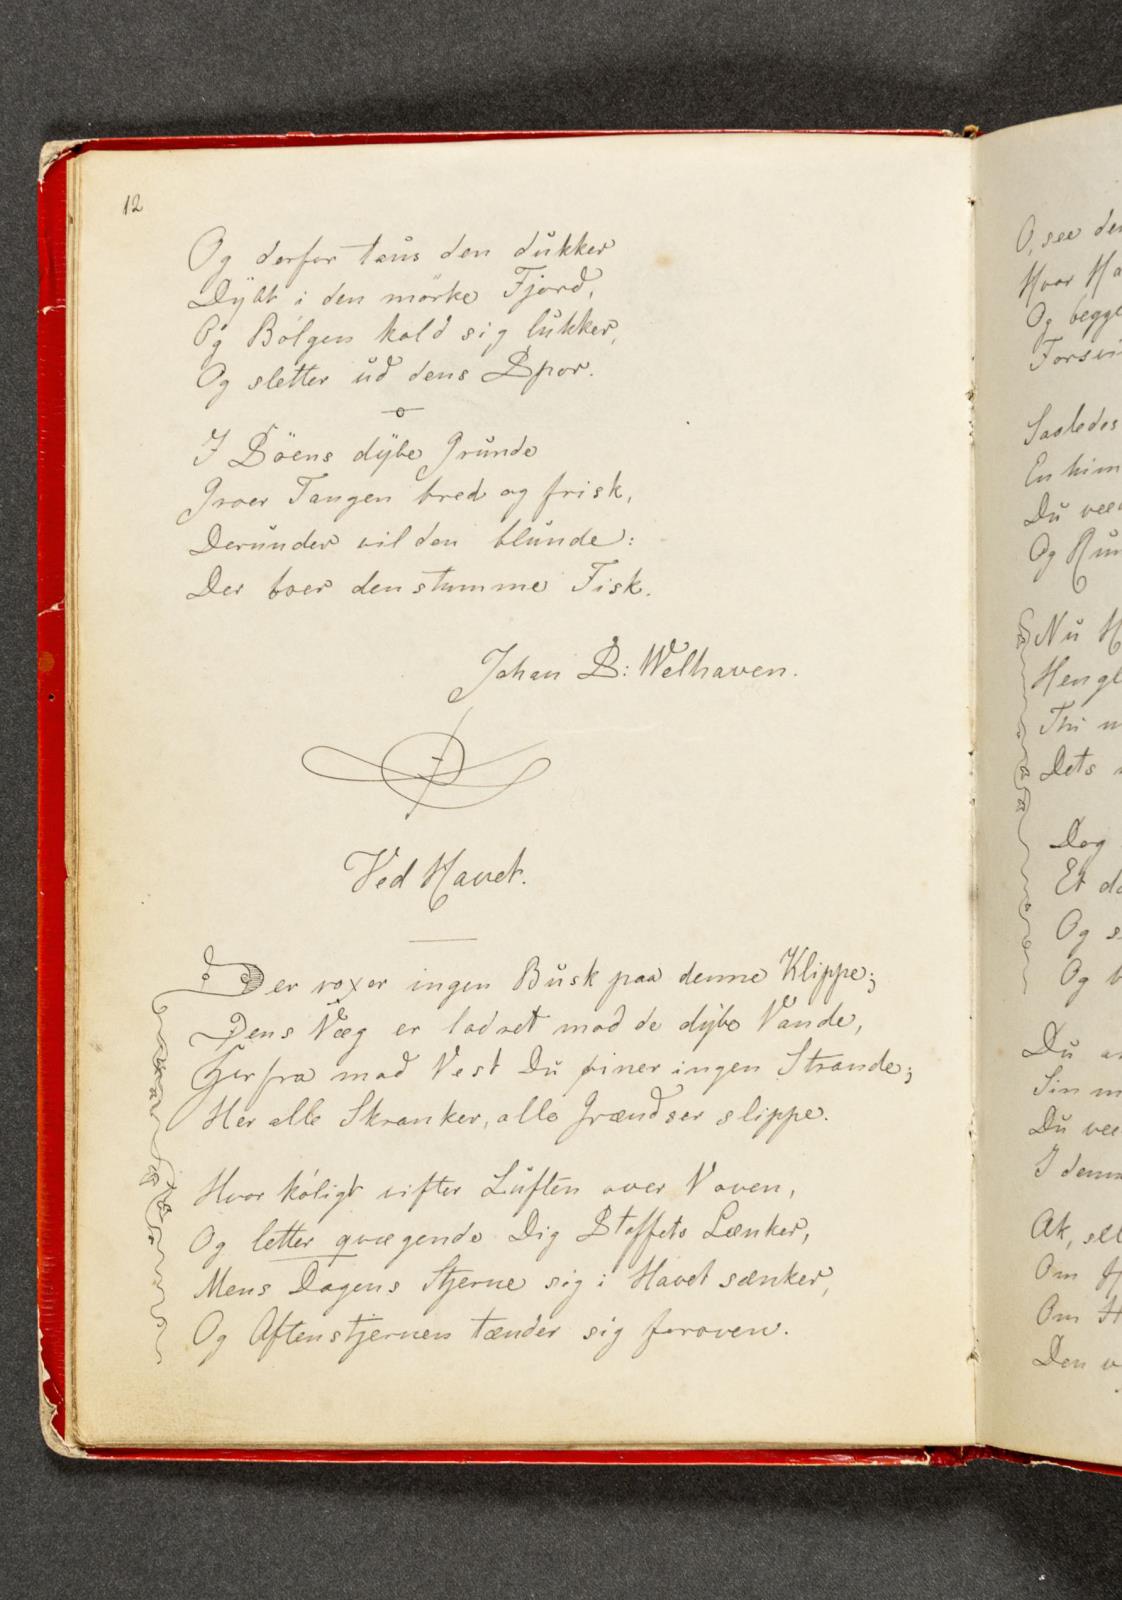 12
Og derfor taus den dukker
Dybt i den mörke Fjord,
Og Bölgen kold sig lukker,
Og sletter ud dens Spor.
I Söens dybe Grunde
Groer Tangen bred og frisk,
Derunder vil den blunde:
Der boer den stumme Fisk.
Johan S: Welhaven.
Ved Havet.
Der voxer ingen Busk paa denne Klippe;
Dens Væg er lodret mod de dybe Vande,
Herfra mod Vest Du öiner ingen Strande;
Her alle Skranker, alle Grændser slippe.
Hvor köligt vifter Luften over Voven,
Og letter qvægende Dig Stoffets Lænker,
Mens Dagens Stjerne sig i Havet sænker,
Og Aftenstjernen tænder sig foroven.
O, see
Hvor
Og begge
Saaledes
En
Du
Og
Nu
Dets
Dog
Et
Og
Og
Du
Sin
Du
I
Ak,
Om
Om
Den